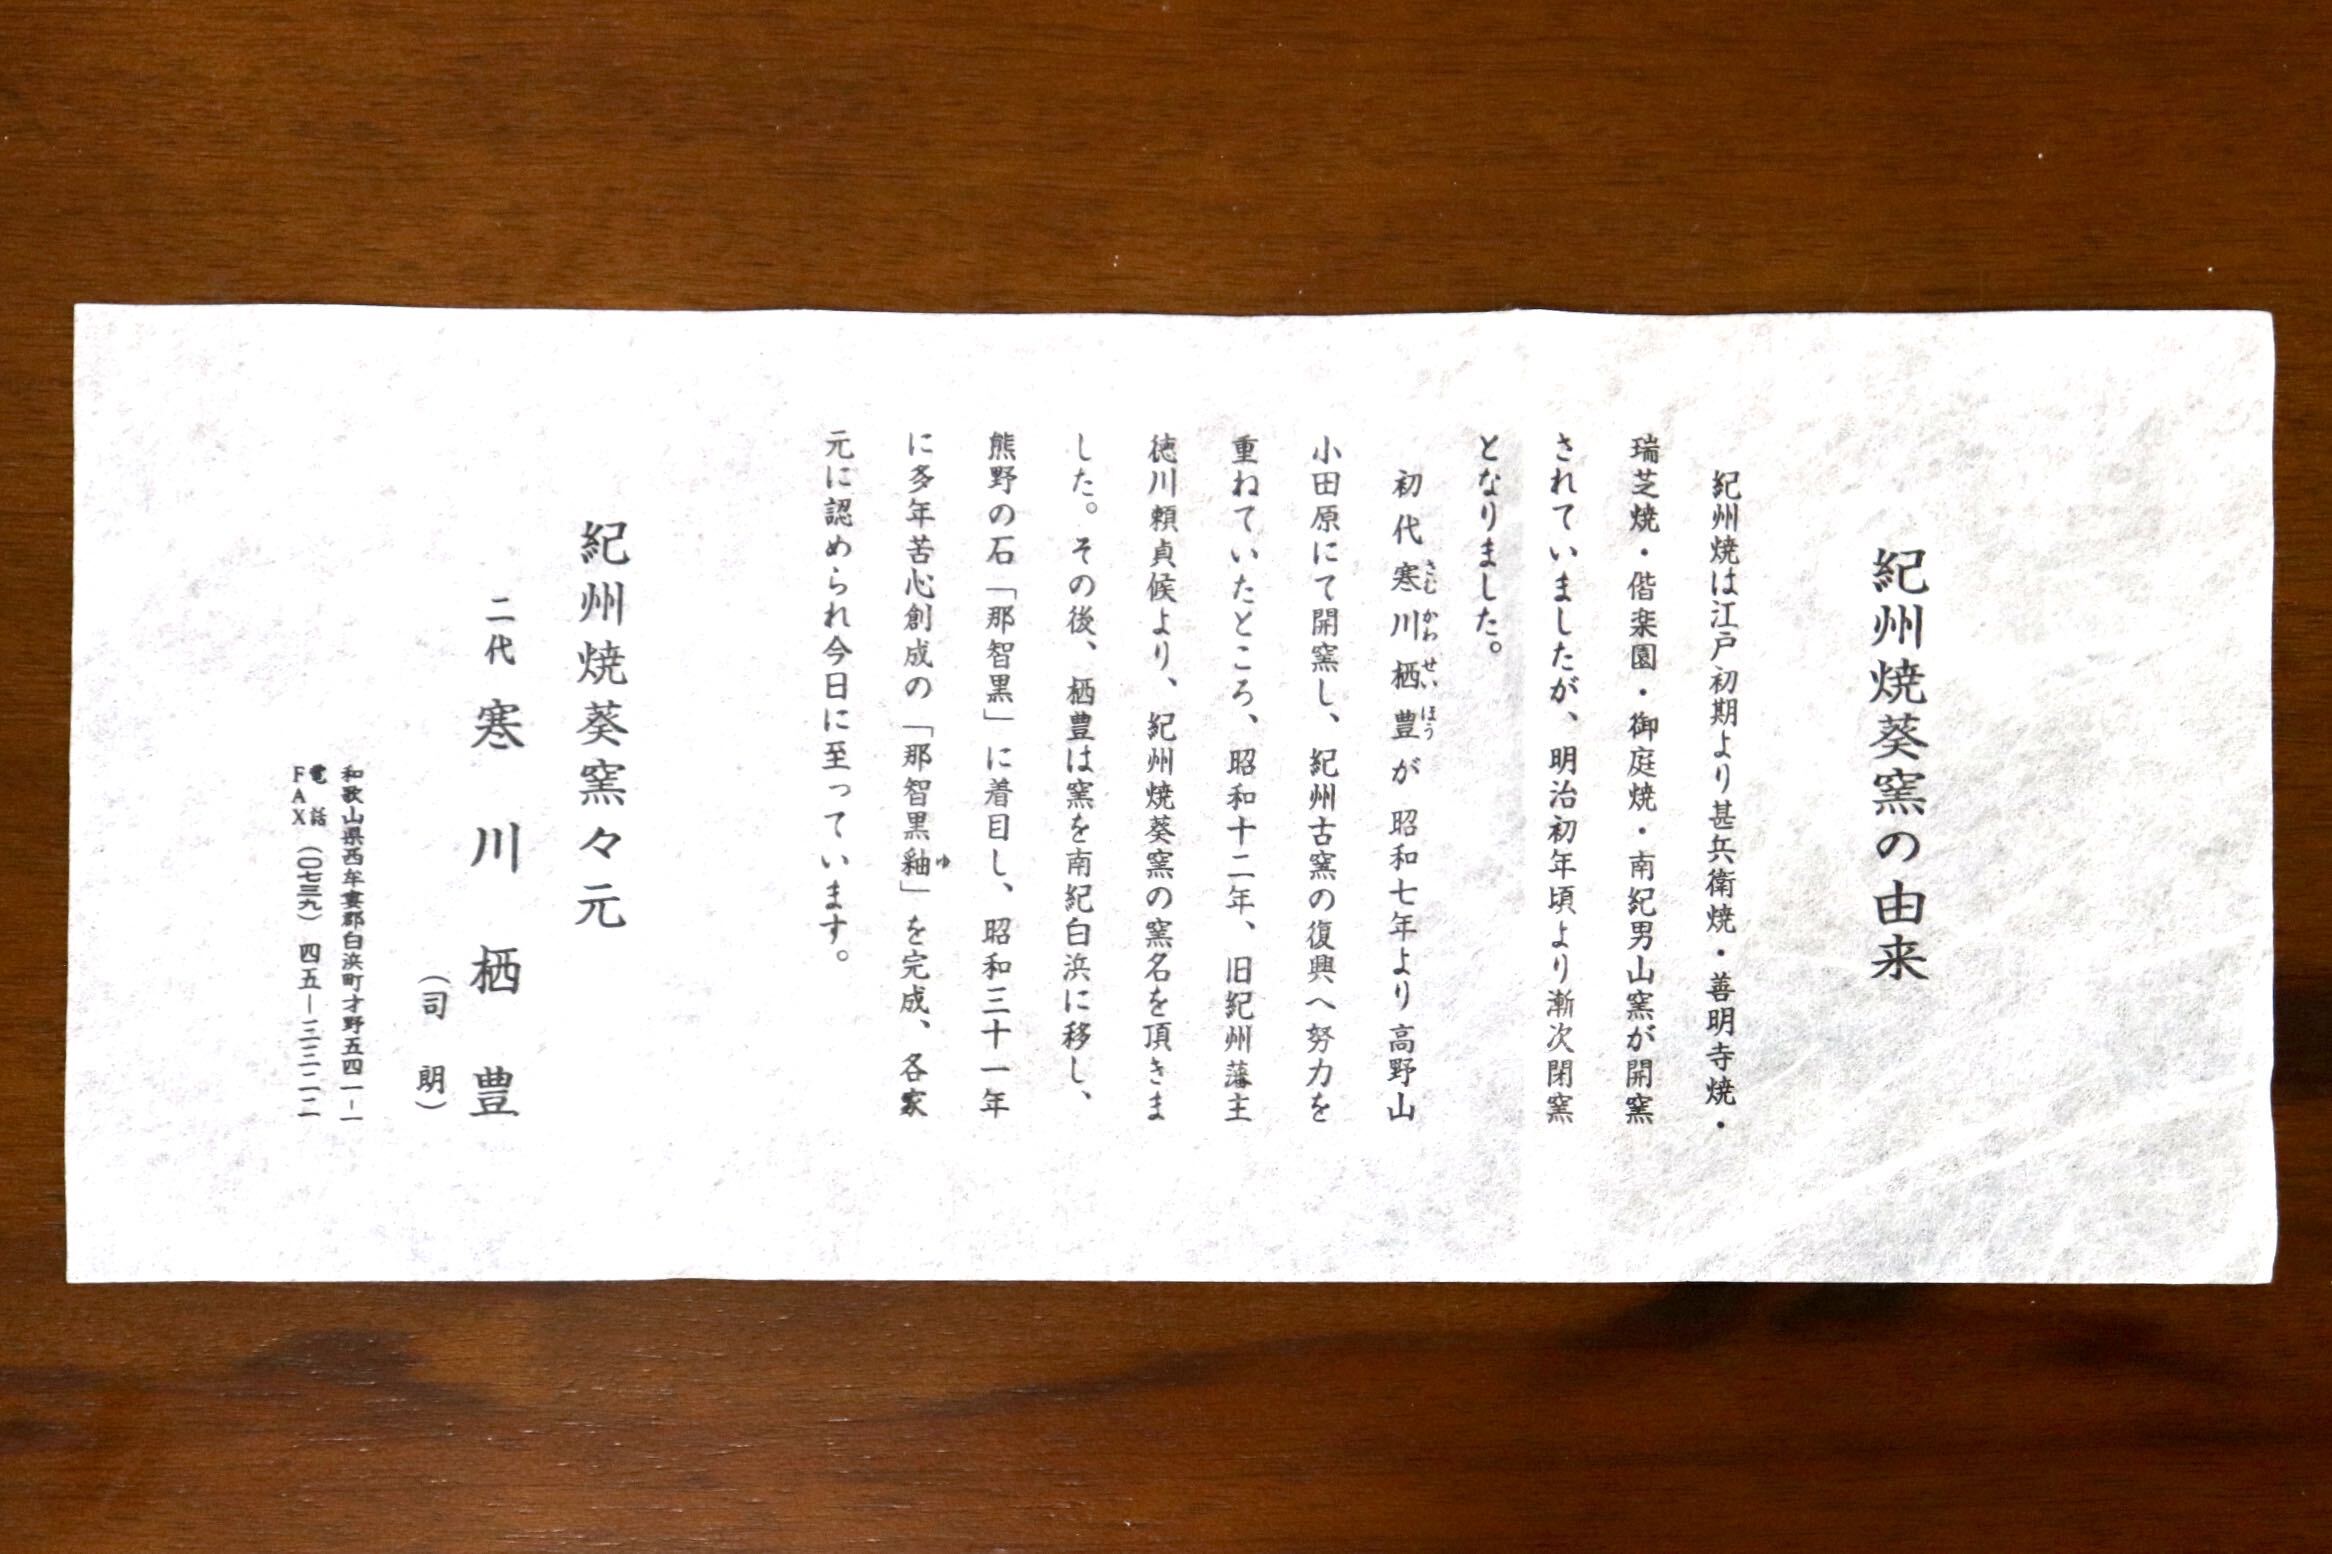 紀州焼葵窯の由来
紀州焼は江戸初期より甚兵衛焼・善明寺焼・
瑞芝焼・偕楽園・御庭焼・南紀男山窯が開窯
されていましたが、明治初年頃より漸次閉窯
となりました。
初代寒川栖豊が昭和七年より高野山
さむかわせいほう
小田原にて開窯し、紀州古窯の復興へ努力を
重ねていたところ、昭和十二年、旧紀州藩主
徳川頼貞候より、紀州焼葵窯の窯名を頂きま
した。その後、栖豊は窯を南紀白浜に移し、
熊野の石「那智黒」に着目し、昭和三十一年
に多年苦心創成の「那智黒釉」を完成、各家
ゆ
元に認められ今日に至っています。
紀州焼葵窯々元
二代 寒川栖豊
（司朗）
和歌山県西牟婁郡白浜町才野一五四一ー一
電話
FAX（〇七三九）四五ー三三二二